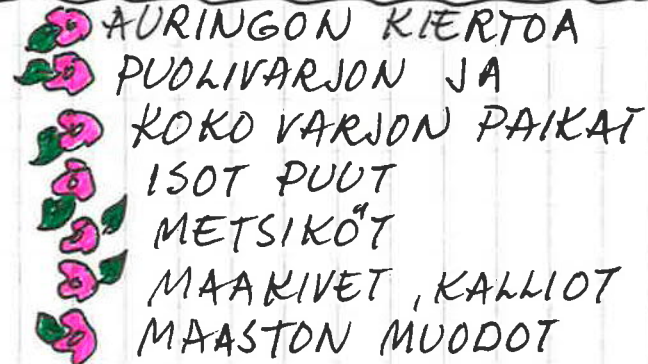 AURINGON KIERTOA
PUOLIVARJON JA
KOKO VARJON PAIKAT
ISOT PUUT
METSIKÖT
MAAKIVET, KALLIOT
MAASTON MUODOT